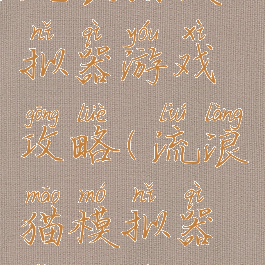 nǐ qì yóu xì
拟器游戏
gōng lüè liú làng
攻略(流浪
māo mó nǐ qì
猫模拟器